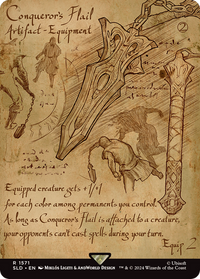 Conqueror's Flail
Artifact - Equipment
2
Equipped creature gets +1/+1
for each color among permanents you control.
As long as Conqueror's Flail is attached to a creature,
your opponents can't cast spells during your turn.
Equip 2
R 1571
SLD • EN MIKLÓS LIGETI & ANOWORLD DESIGN
© Ubisoft
™ & © 2024 Wizards of the Coast